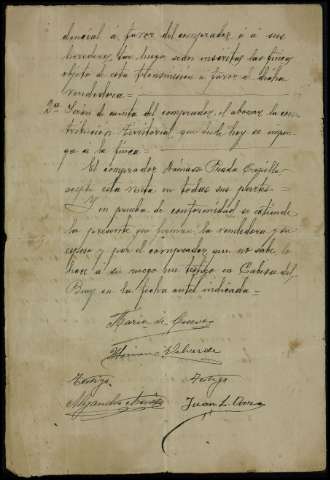 demoral á favor del comprador ó á sus
herederos, tan luego sean inscritas las fincas
objeto de esta transmision a favor a dicha
vendedora=
2ª Serán de cuenta del comprador, el abonar la con
tribución territorial que desde hoy se impon
ga a la finca=
El comprador Prada Capilla
acepta esta venta en todas sus partes=
Y en prueba de conformidad se extiende
la presente que firman la vendedora y su
esposo y por el comprador que no sabe lo
hace á su ruego un testigo en Cabeza del
Buey en la fecha antes indicada=
Maria de
Valverde
Testigo Testigo
Alejandro Juan L.